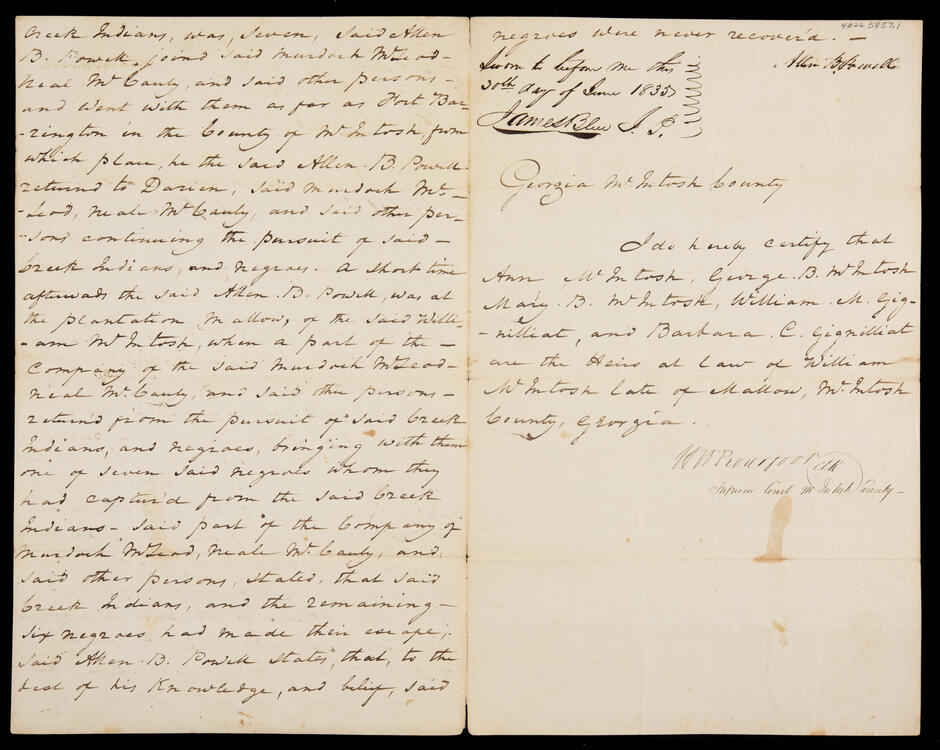 Creek Indians, was, seven, said Allen
B. Powell joind said Murdoch McLeod-
Neal McCauly, and said other persons-
and went with them as far as Fort Bar-
-rington in the County of McIntosh, from
which place, he the said Allen. B. Powell
returnd to Darien, said Murdoch Mc-
-Leod, Neale McCauly, and said other per-
-sons continuing the pursuit of said-
Creek Indians, and negroes. A short time
afterwads the said Allen. B. Powell, was at
the plantation Mallow, of the said Willi-
-am McIntosh, when a part of the-
Company of the said Murdoch McLeod-
Neal McCauly, and said other persons-
returnd from the pursuit of said Creek
Indians, and negroes, bringing with them
one of seven said negroes whom they
had capturd from the said Creek
Indians- said part of the Company of
Murdoch McLeod, Neale McCauly, and
said other persons, stated, that said
Creek Indians, and the remaining-
six negroes had made their escape;
Said Allen. B. Powell states, that, to the
best of his Knowledge, and belief, said
4026.3857.1
negroes were never recoverd. -
Allen B Powell
Sworn to before me this
30th day of June 1835
James Blue J. P.
Georgia McIntosh County
I do hereby certify that
Ann McIntosh, George. B. McIntosh
Mary. B. McIntosh, William. M. Gig-
-nilliat, and Barbara. C. Gignilliat
are the Heirs at law of William
McIntosh late of Mallow, McIntosh
County, Georgia.
Clk
Superior Court McIntosh County-